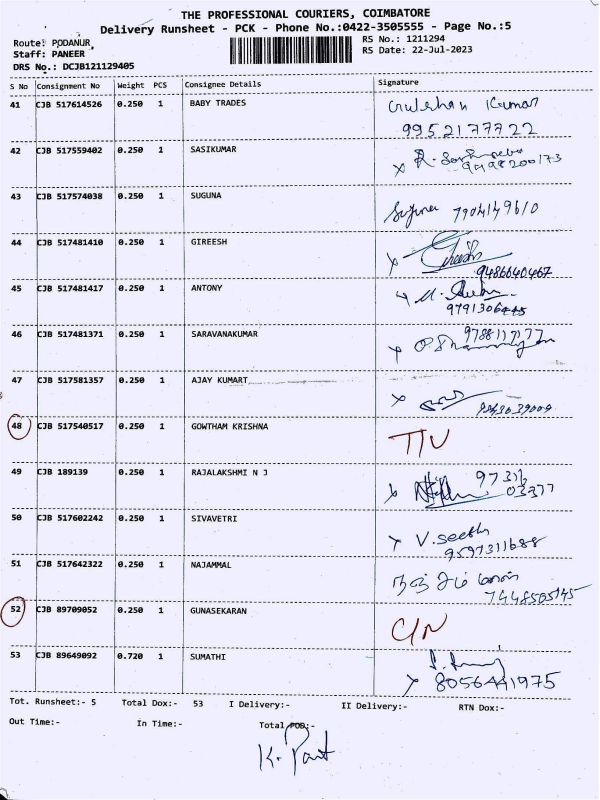 THE PROFESSIONAL COURIERS, COIMBATORE
Delivery Runsheet - PCK - Phone No.:0422-3505555 - Page No.:5
Route: PODANUR
RS No.: 1211294
Staff: PANEER
RS Date: 22-Jul-2023
DRS No.: DCJB121129405
S No Consignment No Weight PCS Consignee Details Signature
41 CJB 517614526 0.250 1 BABY TRADES Gulshan Kumar
9952177722
42 CJB 517559402 0.250 1 SASIKUMAR
43 CJB 517574038 0.250 1 SUGUNA Suguna 7904149610
44 CJB 517481410 0.250 1 GIREESH
9486640467
45 CJB 517481417 0.250 1 ANTONY
9791306445
46 CJB 517481371 0.250 1 SARAVANAKUMAR
47 CJB 517581357 0.250 1 AJAY KUMART
9843039009
48 CJB 517540517 0.250 1 GOWTHAM KRISHNA
49 CJB 189139 0.250 1 RAJALAKSHMI N J
50 CJB 517602242 0.250 1 SIVAVETRI V. seethi
9597311688
51 CJB 517642322 0.250 1 NAJAMMAL நஞ்சம்மாள்
7448505145
52 CJB 89709052 0.250 1 GUNASEKARAN C/N
53 CJB 89649092 0.720 1 SUMATHI
8056441975
Tot. Runsheet:- 5 Total Dox:- 53 I Delivery:- II Delivery:- RTN Dox:-
Out Time:- In Time:- Total POD:-